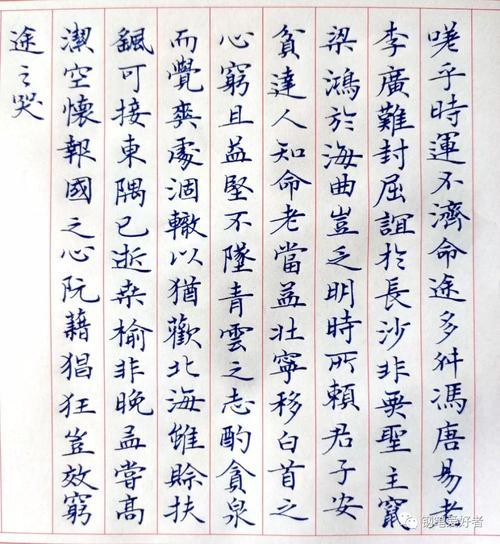 嗟乎時運不濟命途多舛馮唐易老
李廣難封屈誼於長沙非無聖主竄
梁鴻於海曲豈乏明時所賴君子安
貧達人知命老當益壯寧移白首之
心窮且益堅不墜青雲之志酌貪泉
而覺爽處涸轍以猶歡北海雖賒扶
颻可接東隅已逝桑榆非晚孟嘗高
潔空懷報國之心阮藉猖狂豈效窮
途之哭
钢笔爱好者